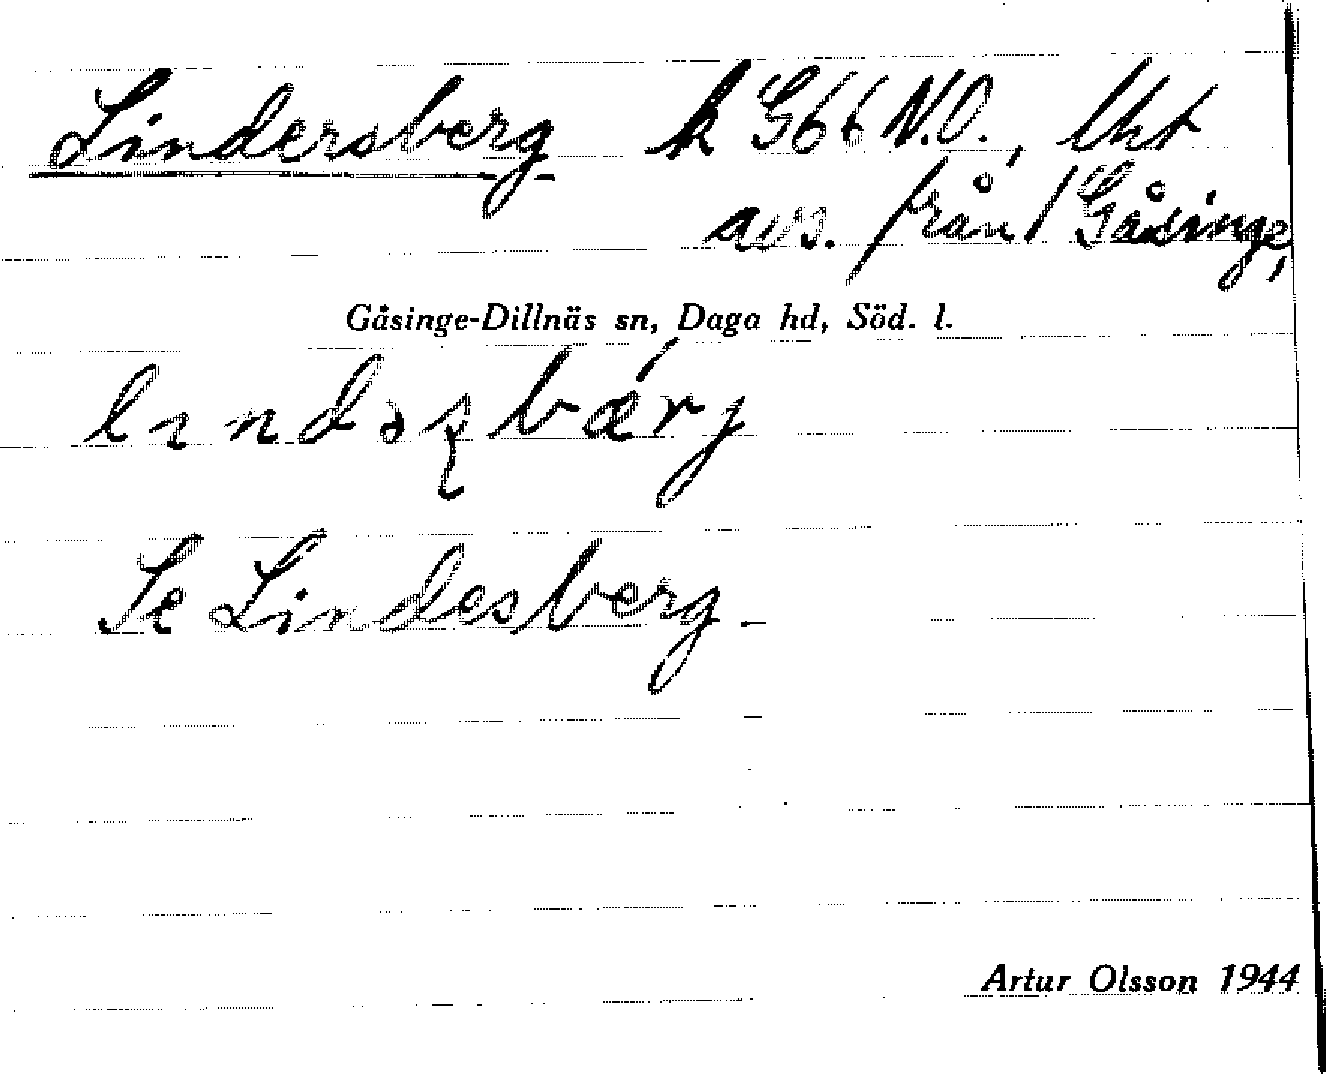 Lindersberg k G66 N.O., lht
avs. från Gåsinge,
Gåsinge-Dillnäs sn, Daga hd, Söd. l.
Se Lindesberg.
Artur Olsson 1944